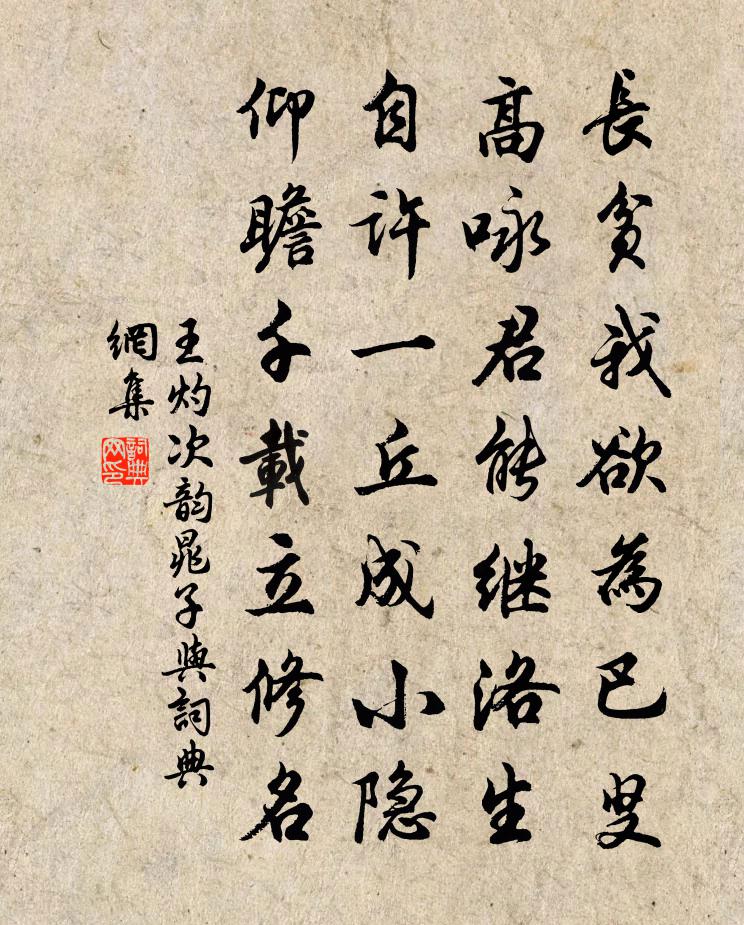 長貧我欲為巴叟
高咏君能继洛生
自許一丘成小隐
仰瞻千載立修名
王灼次韵晁子與詞典
網集
詞典
网印